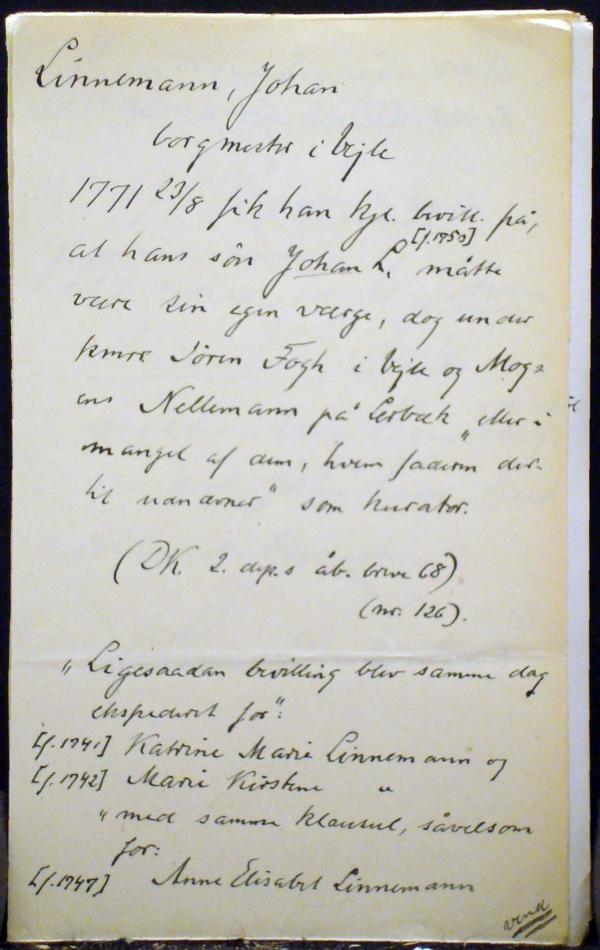 Linnemann, Johan
borgmester i Vejle
1771 23/8 fik han kgl. bevill. på,
at hans søn Johan L. [f. 1753] måtte
være sin egen værge, dog under
kmrr. Sören Fogh i Vejle og Mog=
ens Nellemann på Lerbæk „eller i
mangel af dem, hvem faderen der-
til udnævner" som kurator.
(DK. 2. dep.s åb. breve 68)
(nr. 126).
„Ligesaadan bevilling blev samme dag
ekspederet for":
[f. 1741] Katrine Marie Linnemann og
[f. 1742] Marie Kirstine "
"med samme klausul, såvelsom
for:
[f. 1747] Anne Elisabet Linnemann
vend